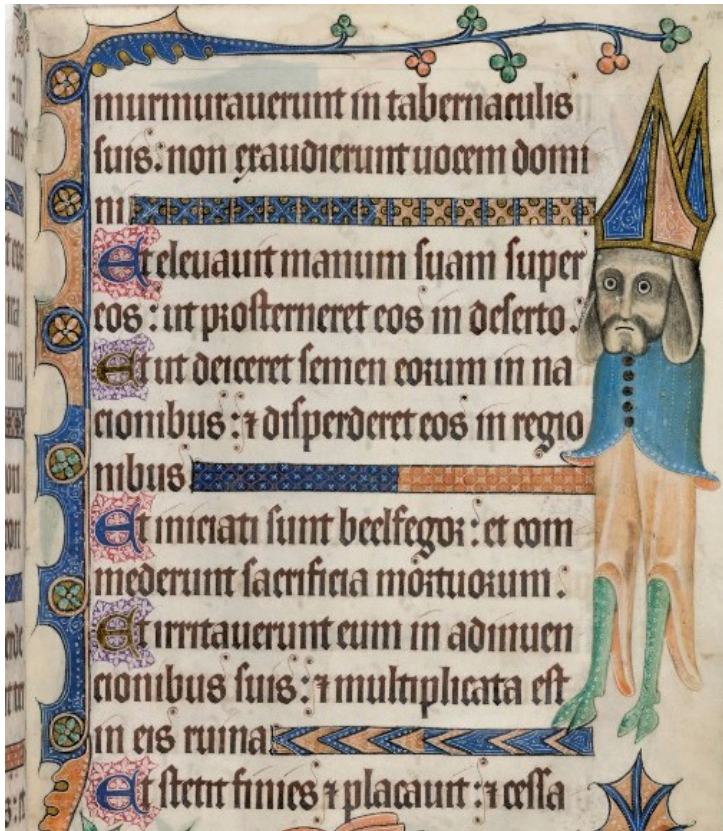 murmurauerunt in tabernaculis
suis: non exaudierunt uocem domi
ni
Et eleuauit manum suam super
eos: ut prosterneret eos in deserto.
Et ut deiceret semen eorum in na
cionibus: ⁊ disperderet eos in regio
nibus
Et iniciati sunt beelfegor: et com
mederunt sacrificia mortuorum:
Et irritauerunt eum in adinuen
cionibus suis: ⁊ multiplicata est
in eis ruina
Et stetit finies ⁊ placauit: ⁊ cessa